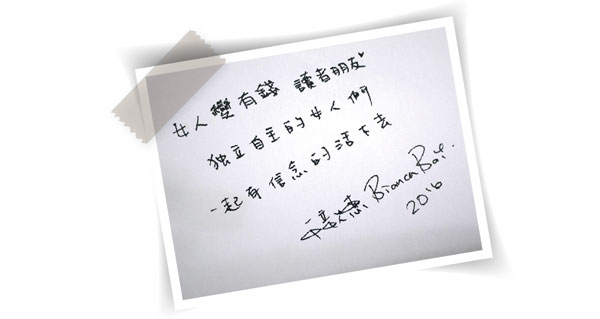 女人變有錢 讀者朋友♥
独立自主的女人們
一起有信念的活下去
Bianca Bai.
2016